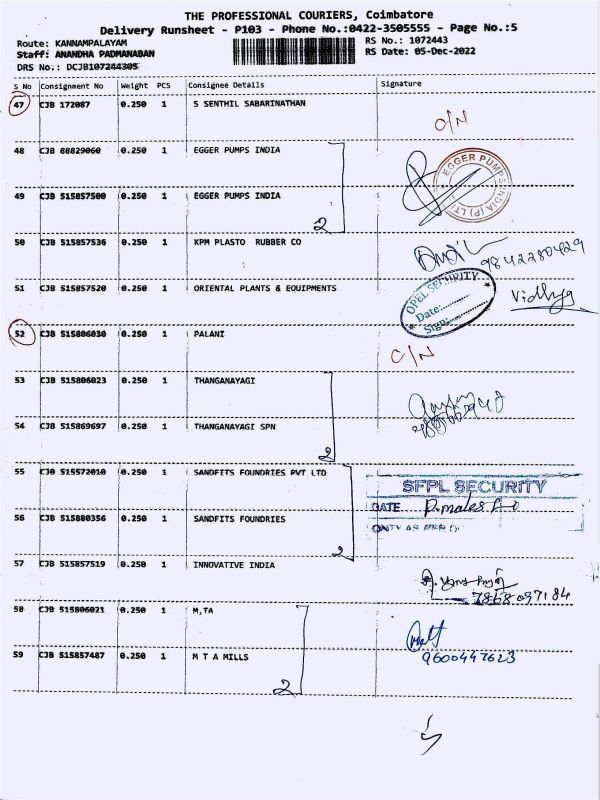 THE PROFESSIONAL COURIERS, Coimbatore
Delivery Runsheet - P103 - Phone No.:0422-3505555 - Page No.:5
Route: KANNAMPALAYAM RS No.: 1072443
Staff: ANANDHA PADMANABAN RS Date: 05-Dec-2022
DRS No.: DCJB107244305
S No Consignment No Weight PCS Consignee Details Signature
47 CJB 172087 0.250 1 S SENTHIL SABARINATHAN
O/N
48 CJB 88829060 0.250 1 EGGER PUMPS INDIA
EGGER PUMPS INDIA (P) LTD
49 CJB 515857500 0.250 1 EGGER PUMPS INDIA
2
50 CJB 515857536 0.250 1 KPM PLASTO RUBBER CO
9842280429
51 CJB 515857520 0.250 1 ORIENTAL PLANTS & EQUIPMENTS
OPEL SECURITY
Date:
Sign:
Vidhya
52 CJB 515806030 0.250 1 PALANI
O/N
53 CJB 515806023 0.250 1 THANGANAYAGI
54 CJB 515869697 0.250 1 THANGANAYAGI SPN
2
55 CJB 515572010 0.250 1 SANDFITS FOUNDRIES PVT LTD
SFPL SECURITY
DATE
56 CJB 515880356 0.250 1 SANDFITS FOUNDRIES
2
57 CJB 515857519 0.250 1 INNOVATIVE INDIA
7868097184
58 CJB 515806021 0.250 1 M,TA
59 CJB 515857487 0.250 1 M T A MILLS
9600447623
2